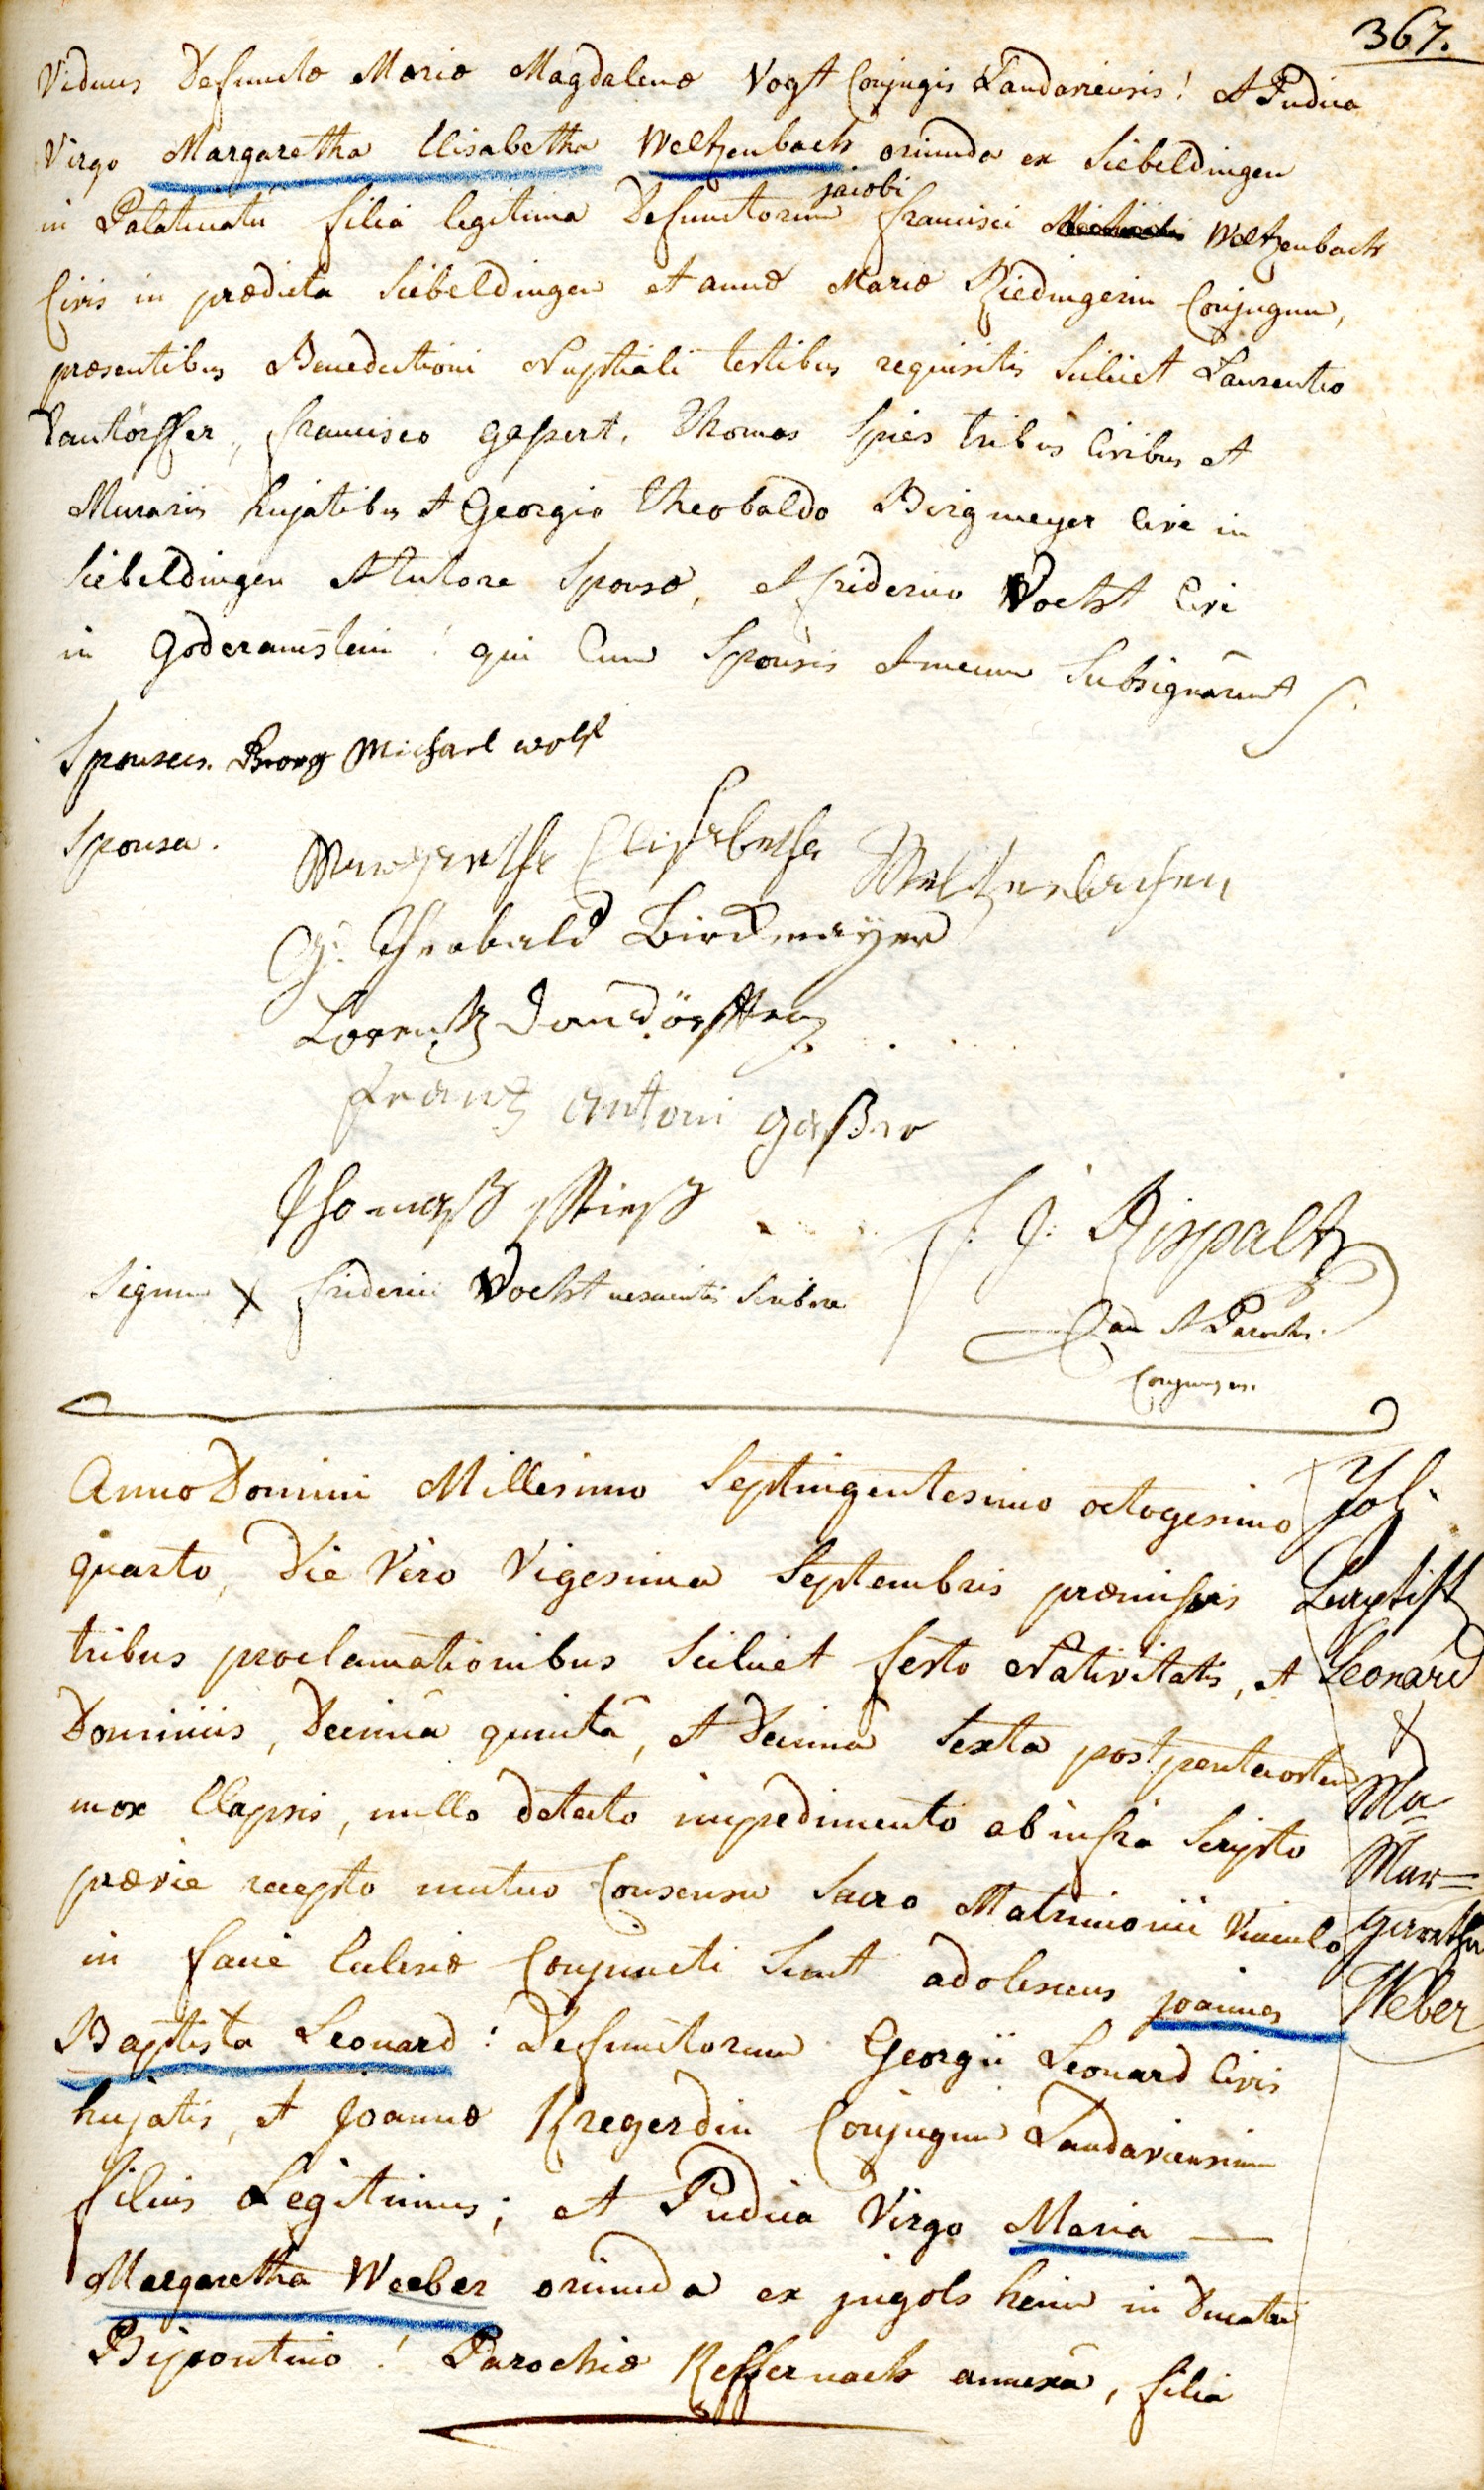 367.
Viduus Defunctæ Mariæ Magdalenæ Vogt Conjugis Landaviensis! et Pudica
Virgo Margaretha Elisabetha Weltzenbach oriunda ex Siebeldingen
in Palatinatu filia legitima Defunctorum jacobi francisci Weltzenbach
Civis in prædicta Siebeldingen et annæ Mariæ Riedingerin Conjugum,
præsentibus Benedictioni Nuptiali testibus requisitis scilicet Laurentio
Dantörffer, francisco gassert, Thomas Spies tribus Civibus et
Murariis hujatibus et Georgio Theobaldo Birgmeyer Cive in
Siebeldingen et tutore Sponsæ, et friderico Vocht Cive
in Goderamstein! qui Cum Sponsis et mecum Subsignârunt
Sponsus. Georg Michael wolf
Sponsa. Margretha Elisabetha Weltzenbachen
G: Theobald Birckmayer
Lorentz Dandörffer
frantz antoni gaßer
Thomaß Spieß
Signum X friderici Vocht nescientis Scribere
f. J. Rispalt
Can et Paroch.
Anno Domini Millesimo Septingentesimo octogesimo
quarto, Die Vero Vigesima Septembris præmissis
tribus proclamationibus scilicet festo Nativitatis, et
Dominicis, Decimâ quintâ, et Decima Sexta post pentecosten
mox Elapsis, nullo detecto impedimento ab infra Scripto
prævie recepto mutuo Consensu Sacro Matrimonii Vinculo
in facie Ecclesiæ Conjuncti Sunt adolescens joannes
Baptista Leonard: Defunctorum Georgii Leonard Civis
hujatis, et Joannæ Kregerdin Conjugum Landaviensium
filius Legitimus; et Pudica Virgo Maria
Margaretha Weeber oriunda ex jngolsheim in Ducatu
Bipontino! Parochiæ Keffernach annexâ, filia
Joh.
Baptist
Leonard
&
Ma
Mar=
garetha
Weber